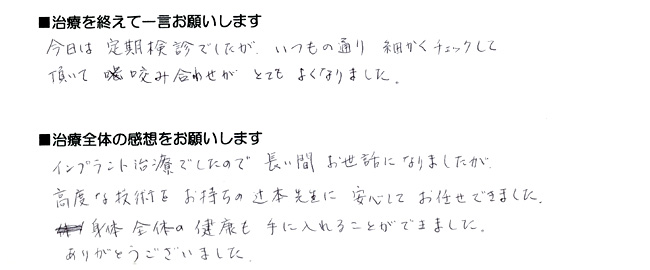 ■治療を終えて一言お願いします
今日は 定期検診でしたが、いつもの通り 細かくチェックして
頂いて 咬み合わせが とても よくなりました。
■治療全体の感想をお願いします
インプラント治療でしたので 長い間 お世話になりましたが、
高度な技術を お持ちの 辻本先生に 安心して お任せできました。
身体 全体の 健康も 手に入れることができました。
ありがとうございました。